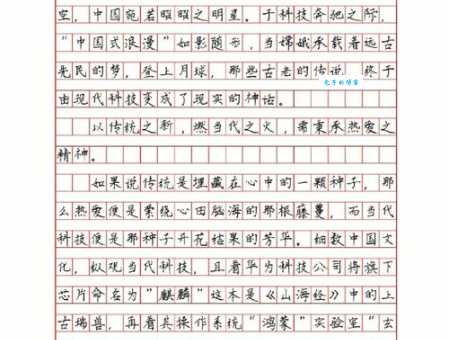 空，中国宛若昭昭之明星。于科技奔驰之际，
“中国式浪漫”如影随形，当嫦娥承载着远古
先民的梦，登上月球，那些古老的传说 终于
由现代科技变成了现实的神话。
以传统之新，燃当代之火，需秉承热爱之
精神。
如果说传统是埋藏在心中的一颗种子，那
么热爱便是萦绕心田脑海的那根藤蔓，而当代
科技便是那种子开花结果的芳华。细数中国文
化，纵观当代科技，且看华为科技公司将旗下
芯片命名为”麒麟”这本是《山海经》中的上
古瑞兽，再看其操作系统”鸿蒙”实验室“玄